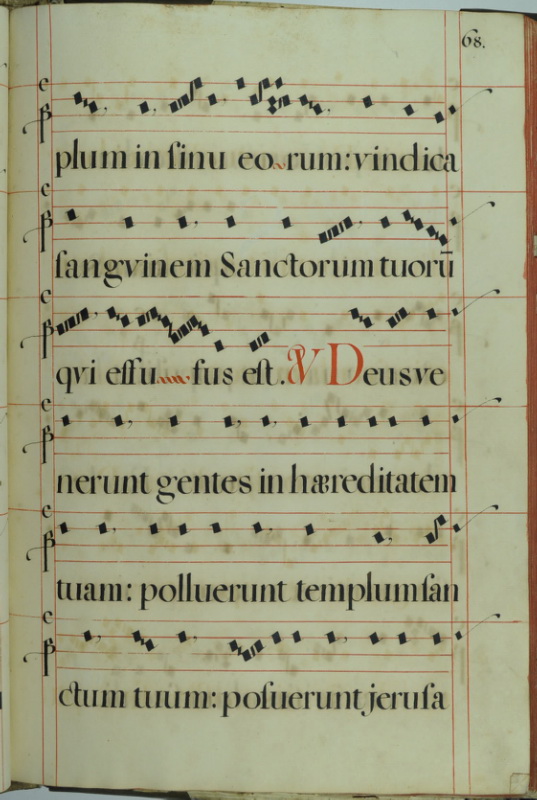 68.
plum in ſinu eorum: vindica
ſangvinem Sanctorum tuorū
qvi eſſuſus eſt. ℣ Deus ve
nerunt gentes in hæreditatem
tuam: polluerunt templum ſan
ctum tuum: poſuerunt jeruſa